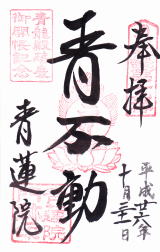 奉拝
平成廿六年
十月二十二日
青不動
青龍殿落慶
御開帳記念
青蓮院